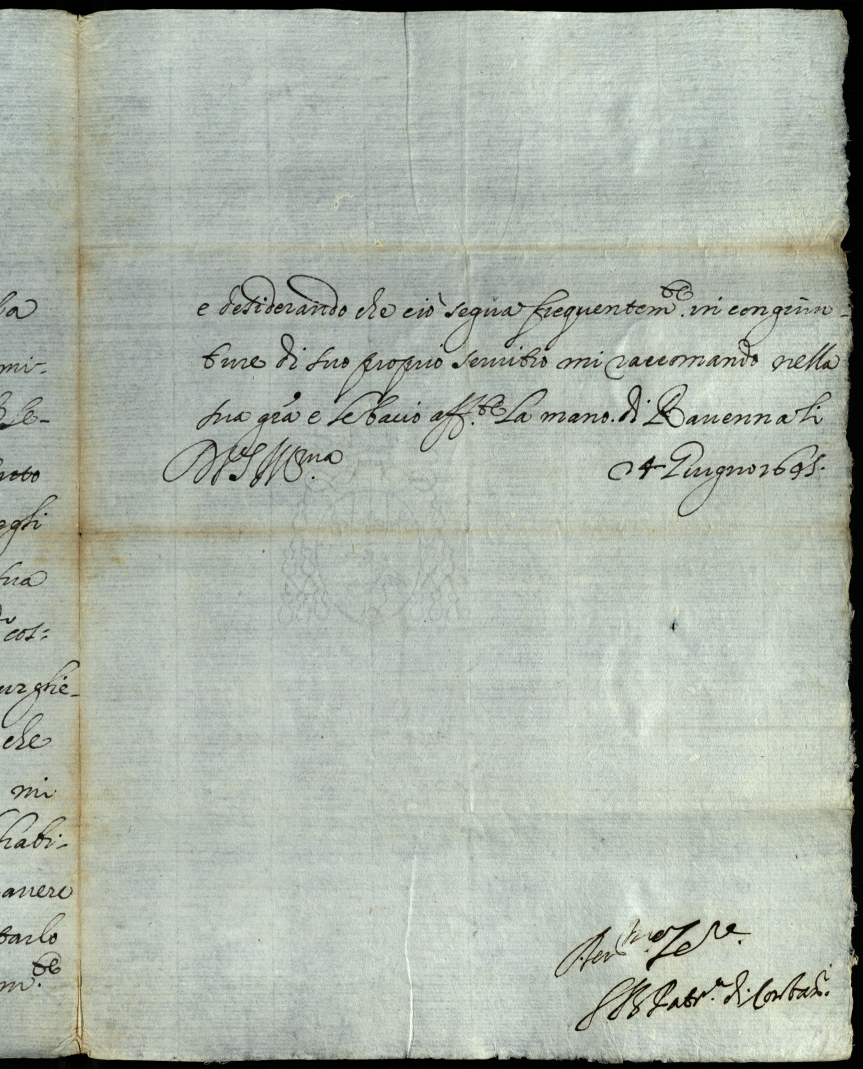 la
mi-
se-
reto
rghi
sua
cos:
urghe-
che
mi
habi-
avere
tarlo
m.te
e desiderando che ciò segua frequentem.te in congiun-
ture di suo proprio servitio mi raccomando nella
sua grã e le bacio aff.te La mano. di Ravenna li
D V S Ill.ma 24 Giugno 1695.